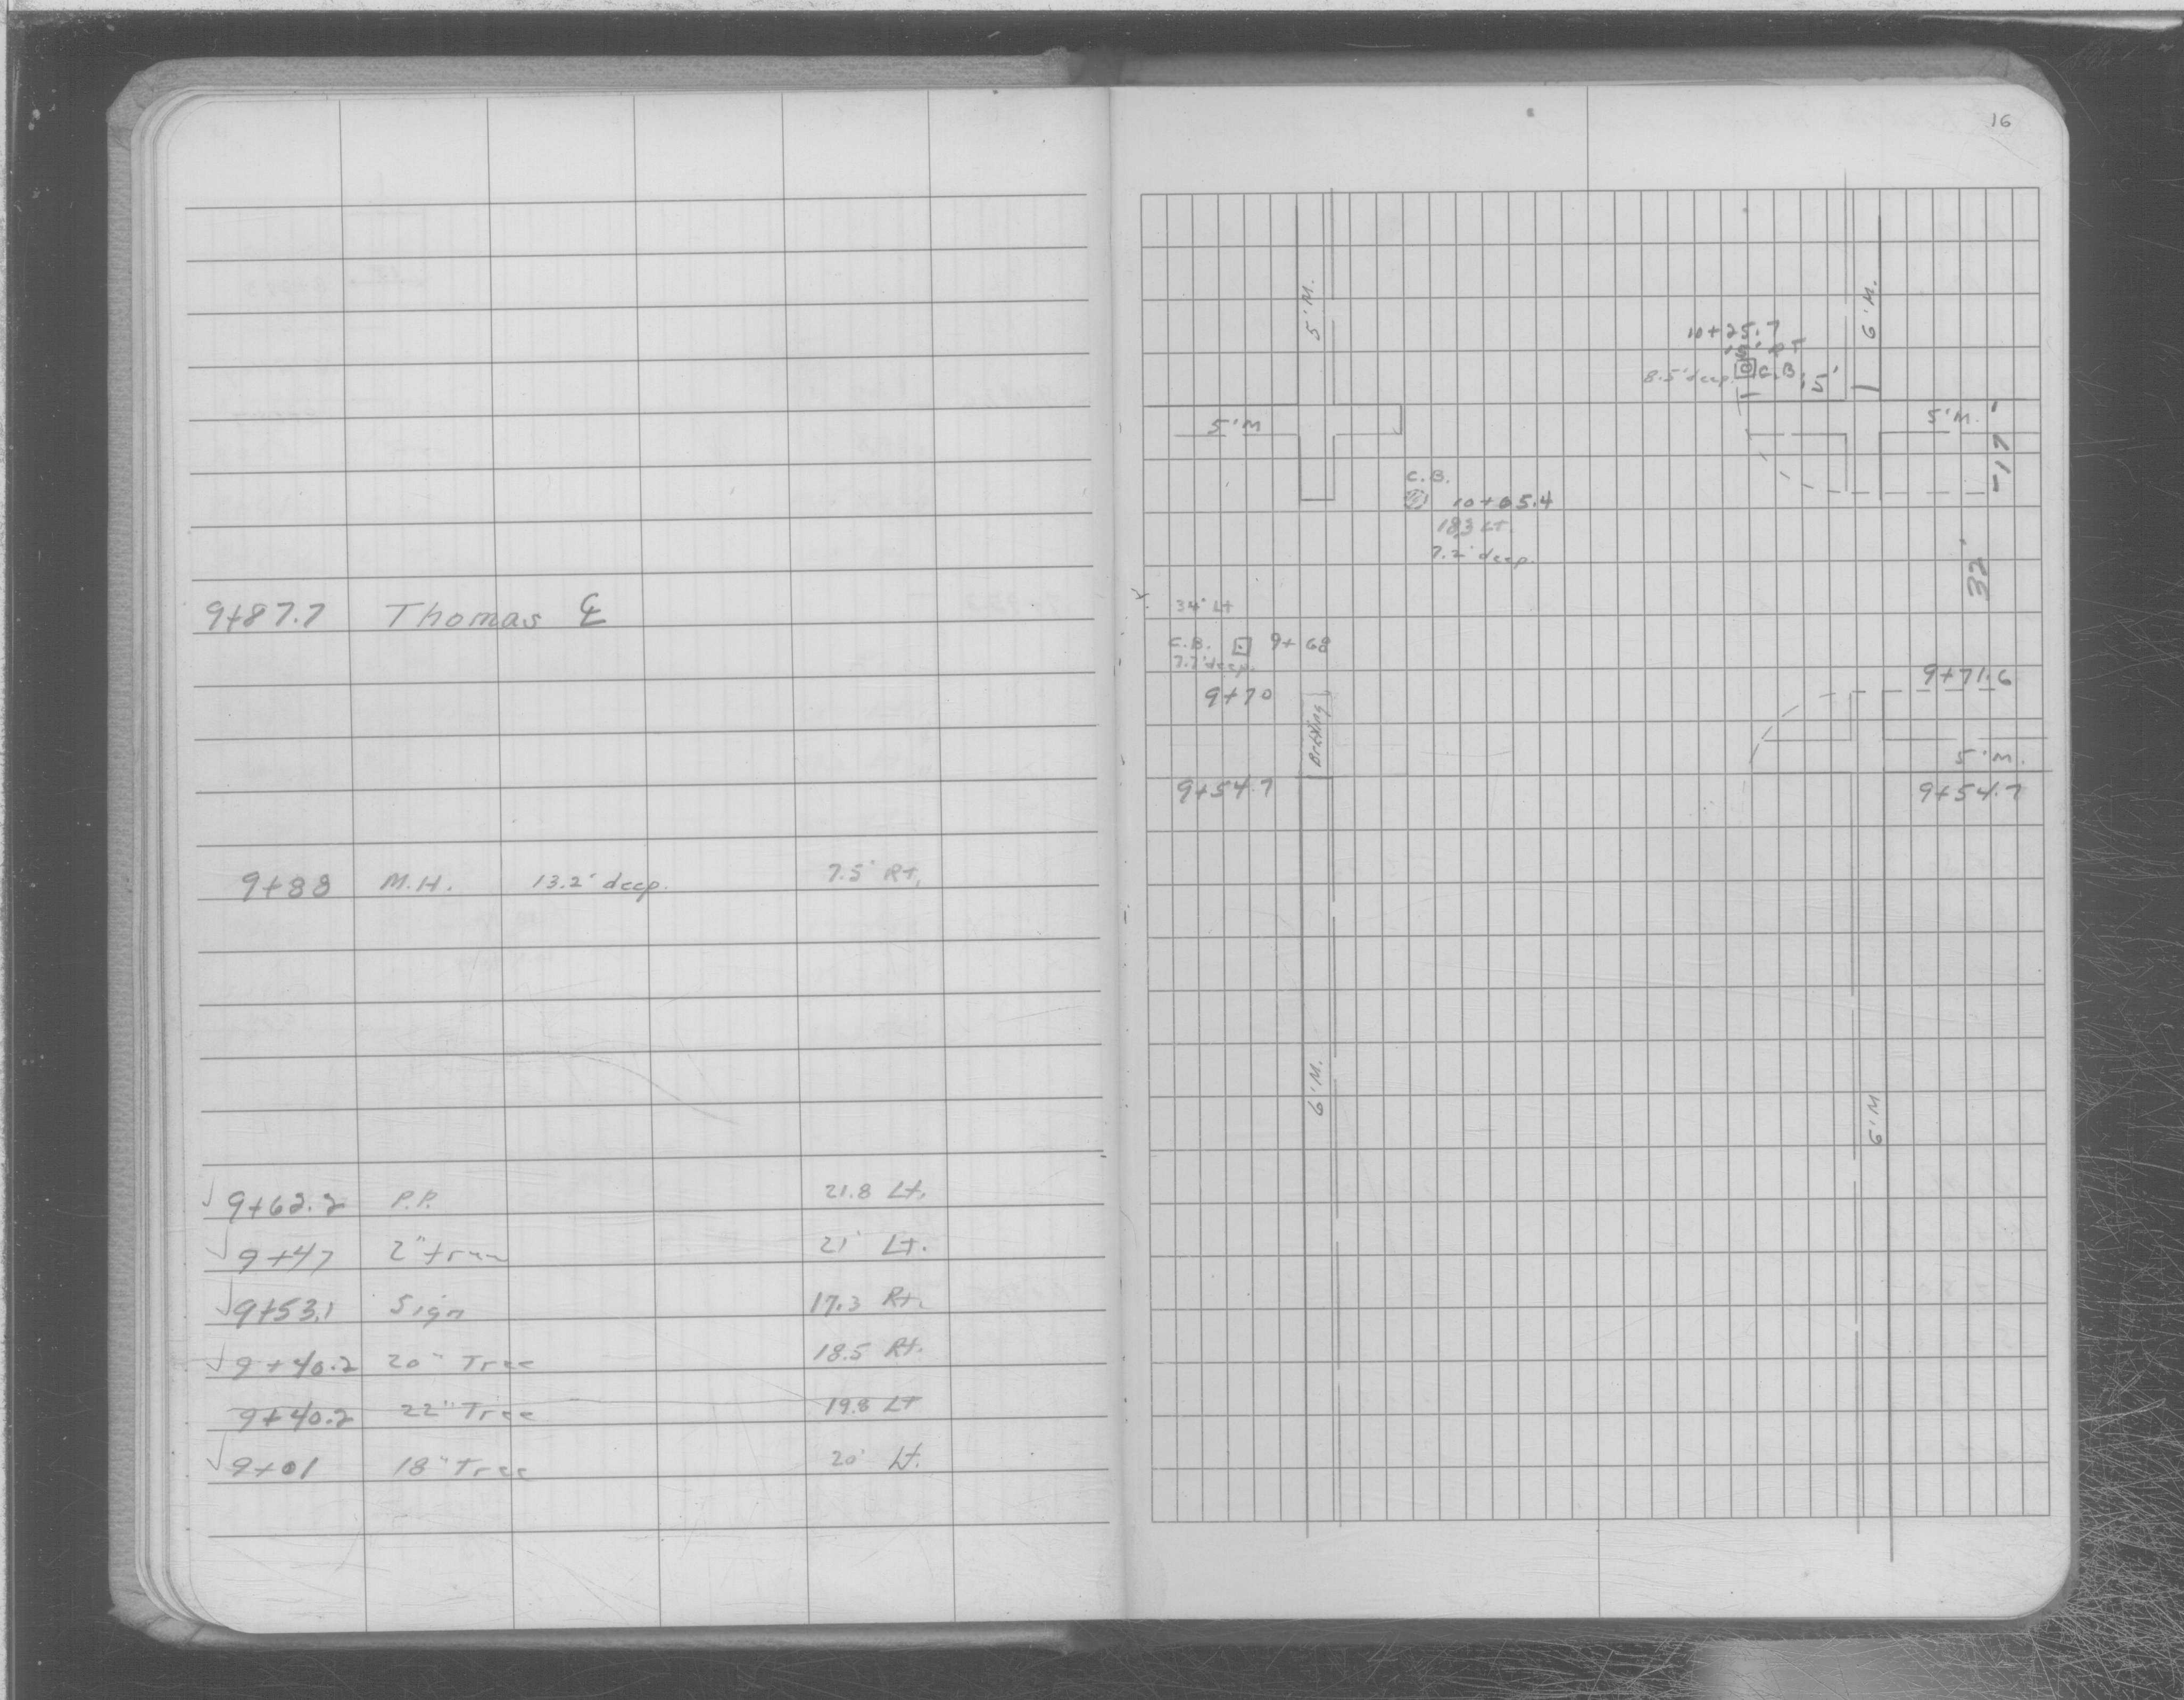 9+87.7 Thomas ℄
9+88 M.H. 13.2' deep. 7.5' Rt.
√ 9+62.2 P.P. 21.8 Lt.
√ 9+47 2" tree 21' Lt.
√ 9+53.1 Sign 17.3 Rt.
√ 9+40.2 20" Tree 18.5 Rt.
9+40.2 22" Tree 19.8 Lt
√ 9+01 18" Tree 20' Lt.
16
5' M.
6' M.
10+25.7
8.5' deep. C.B. 15'
5' M
5' M.
17'
C.B.
10+05.4
18.3 Lt.
7.2' deep.
32'
34' Lt
C.B. 9+68
7.7' deep.
9+70
9+71.6
5' M.
9+54.7
9+54.7
6' M.
6' M